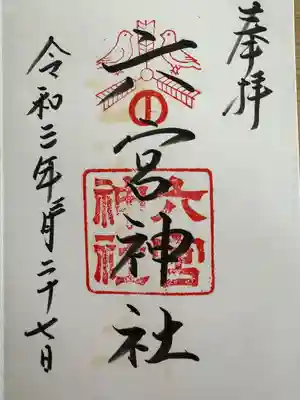 奉拝
六宮神社
六宮神社
令和二年三月二十七日